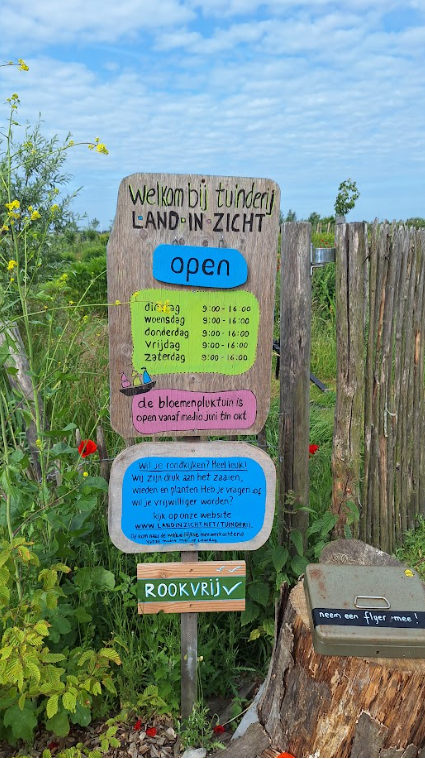 Welkom bij tuinderij
LAND-IN-ZICHT
open
dinsdag 9:00-16:00
woensdag 9:00-16:00
donderdag 9:00-16:00
vrijdag 9:00-16:00
zaterdag 9:00-16:00
de bloemenpluktuin is
open vanaf medio juni t/m okt
Wil je rondkijken? Heel leuk!
Wij zijn druk aan het zaaien,
wieden en planten. Heb je vragen of
wil je vrijwilliger worden?
kijk op onze website
WWW.LANDINZICHT.NET/TUINDERIJ.
ROOKVRIJ✓
neem een flyer mee!